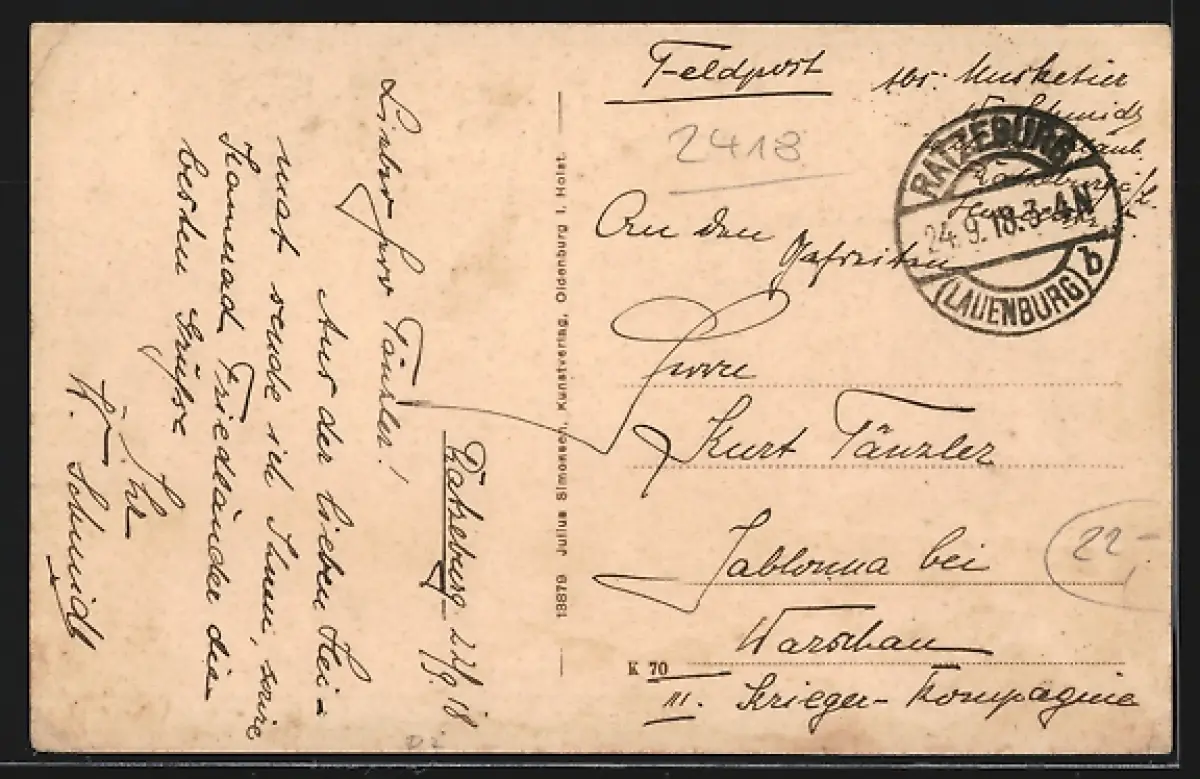 Ratzeburg 24/9. 18
Lieber Herr Tänzler!
Aus der lieben Hei-
mat sende ich Ihnen, sowie
Kamerad Friedländer die
besten Grüsse
Ihr
K. Schmidt
13879 Julius Simonsen, Kunstverlag, Oldenburg i. Holst.
Feldpost
Abs: Musketier
Schmidt
2418
RATZEBURG
24.9.18.3-4N
(LAUENBURG) b
An den
Gefreiten
Herrn
Kurt Tänzler
Jablonna bei
Warschau
K 70
III. Krieger-Kompagnie
22-